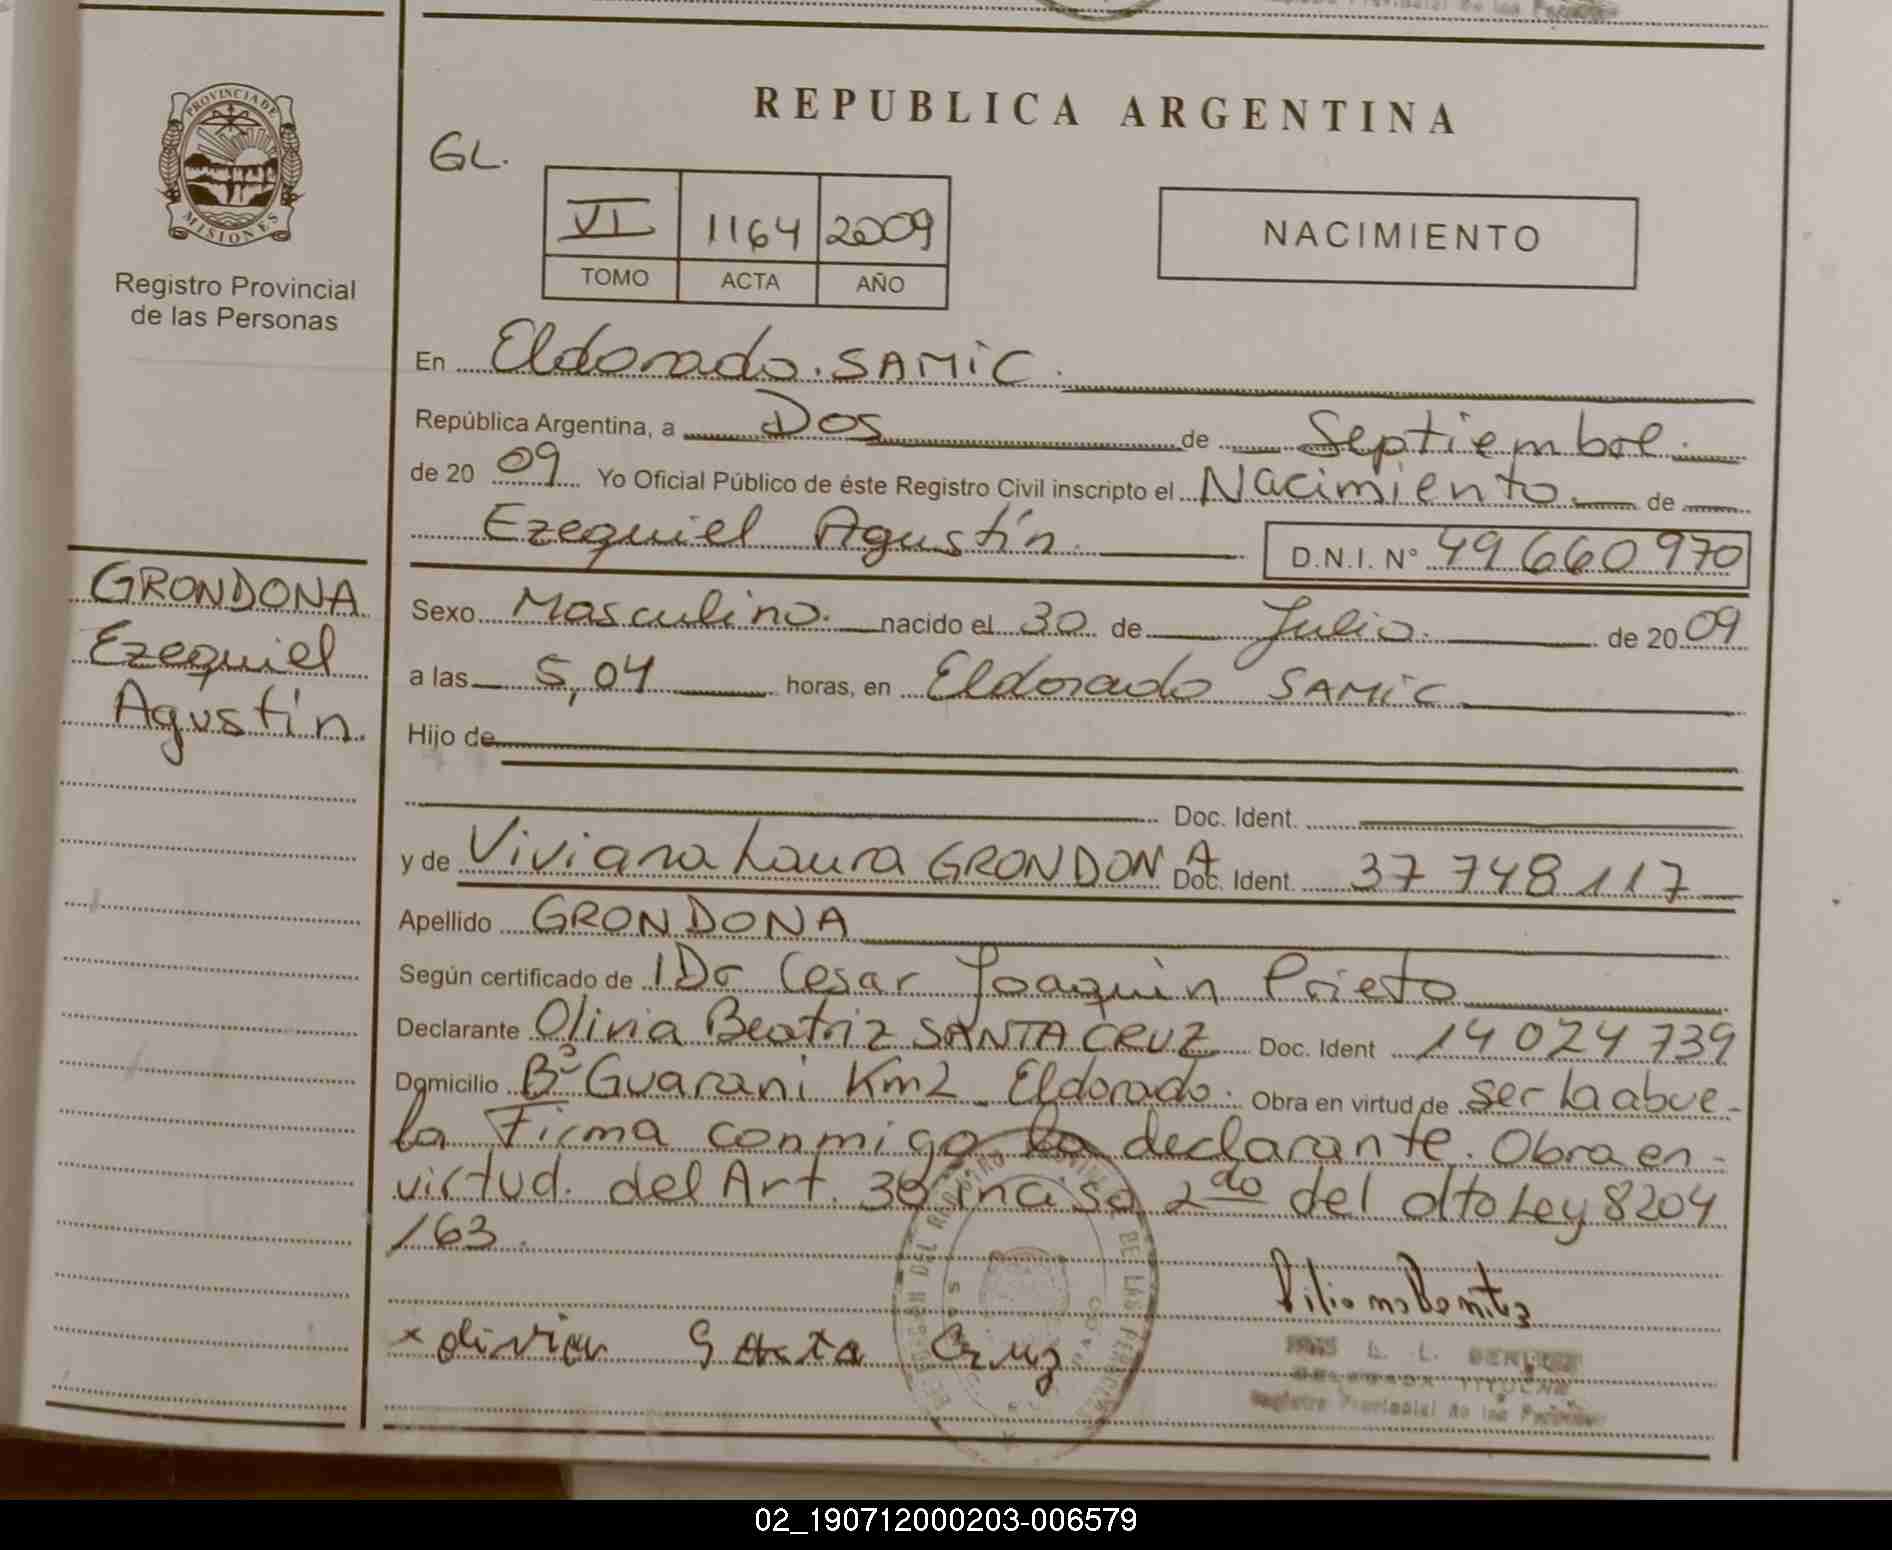 REPUBLICA ARGENTINA
PROVINCIA DE
MISIONES
Registro Provincial
de las Personas
GL.
VI 1164 2009
TOMO ACTA AÑO
NACIMIENTO
En Eldorado. SAMIC.
República Argentina, a Dos de Septiembre.
de 20 09 Yo Oficial Público de éste Registro Civil inscripto el Nacimiento de
Ezequiel Agustín. D.N.I. N° 49 660 970
GRONDONA
Ezequiel
Agustín.
Sexo Masculino. nacido el 30 de Julio. de 20 09
a las 5,04 horas, en Eldorado SAMIC
Hijo de
Doc. Ident.
y de Viviana Laura GRONDONA Doc. Ident. 37 748 117
Apellido GRONDONA
Según certificado de 1 Dr Cesar Joaquin Prieto
Declarante Olivia Beatriz SANTA CRUZ Doc. Ident 14 024 739
Domicilio Bº Guarani Km2 Eldorado. Obra en virtud de ser la abue-
la Firma conmigo la declarante. Obra en
virtud. del Art. 30 inciso 2do del dto Ley 8204
/63.
x olivia Santa Cruz
DE LAS PERSONAS
Registro Provincial de las Personas
02_190712000203-006579